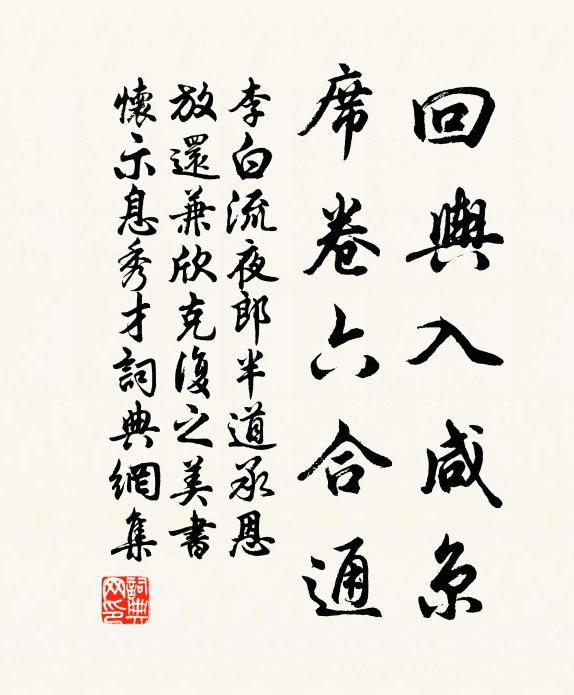 回輿入咸京
席卷六合通
李白流夜郎半道承恩
放還兼欣克復之美書
懷示息秀才詞典網集
詞典網印